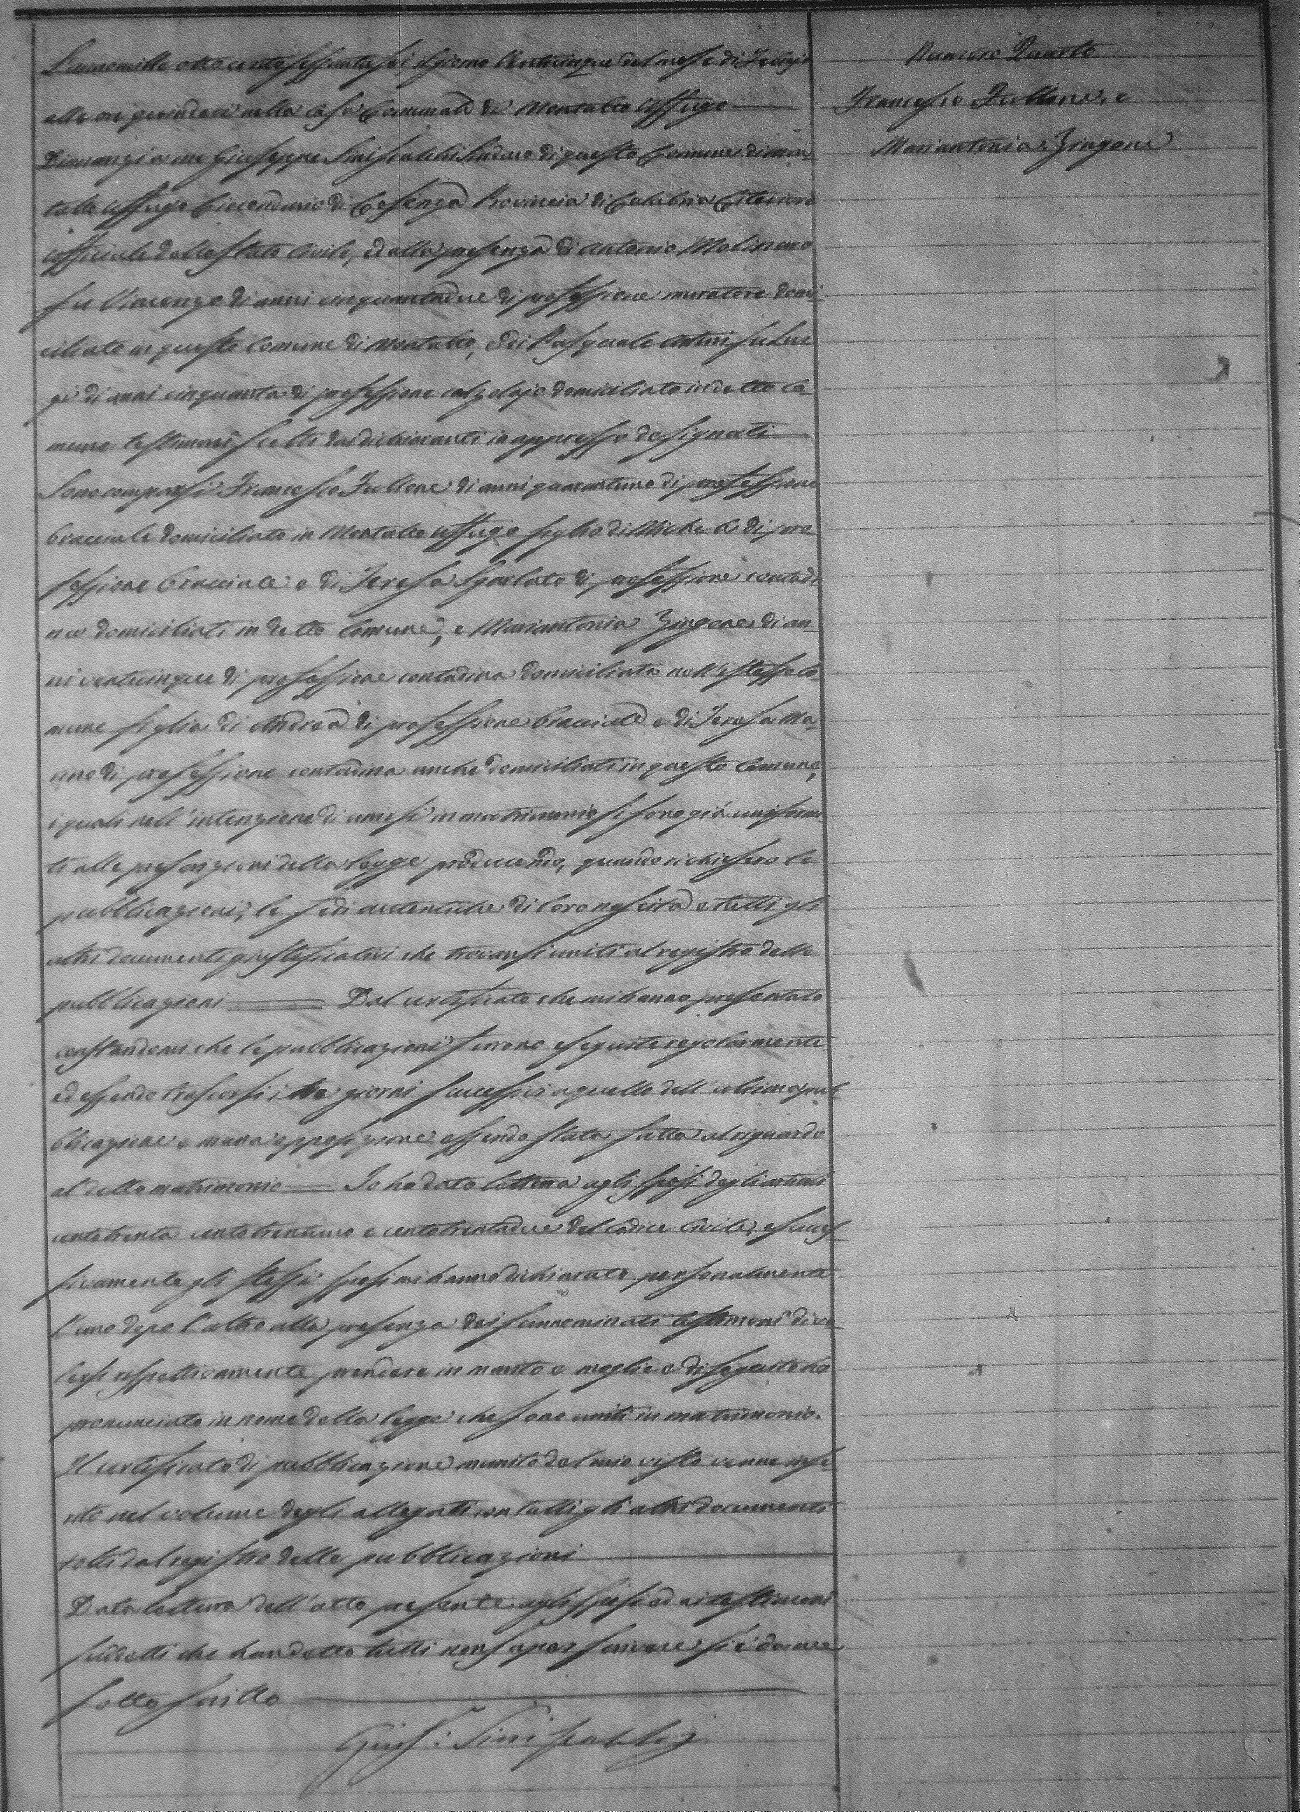 L'anno mille ottocento sessantasei il giorno venticinque del mese di
alle ore quindeci nella Casa Communale di Montalto Uffugo
Dinnanzi a me Giuseppe Sinisalchi Sindaco di questo Comune di Mon
talto Uffugo Circondario di Cosenza Provincia di Calabria Citeriore
Ufficiale dello Stato Civile, ed alla presenza di Antonio Molinaro
fu Vincenzo di anni cinquantadue di professione muratore domi
ciliato in questo Comune di Montalto, e di Pasquale fu Lui
gi di anni cinquanta di professione calzolajo domiciliato in detto Co
mune testimoni scelti dai dichiaranti in appresso designati
Sono comparsi Francesco Fullone di anni quarantuno di professione
bracciale domiciliato in Montalto Uffugo figlio di Michele di pro
fessione bracciale e di Teresa di professione contadi
na domiciliati in detto Comune, e Mariantonia Zingone di an
ni venticinque di professione contadina domiciliata nello stesso Co
mune figlia di Andrea di professione bracciale e di Teresa
di professione contadina anche domiciliati in questo Comune,
i quali nell'intenzione di unirsi in matrimonio si sono già uniforma
ti alle prescrizioni della legge producendo, quando richiesero le
pubblicazioni, le fedi autentiche di loro nascita e tutti gli
altri documenti giustificativi che trovansi uniti al registro delle
pubblicazioni Dal certificato che mi hanno presentato
constandomi che le pubblicazioni furono eseguite regolarmente
ed essendo trascorsi i tre giorni successivi a quello dell'ultima pub
blicazione e niuna opposizione essendo stata fatta al riguardo
al detto matrimonio Io ho dato lettura agli sposi degli articoli
centotrenta centotrentuno e centotrentadue del Codice Civile, e succes
sivamente gli stessi sposi mi hanno dichiarato personalmente
l'uno dopo l'altro alla presenza dei sunnominati testimoni di vo
lersi rispettivamente prendere in marito e moglie e di seguito ho
pronunciato in nome della legge che sono uniti in matrimonio.
Il certificato di pubblicazione munito del mio visto venne inse
rito nel volume degli allegati con tutti gli altri documenti
tolti dal registro delle pubblicazioni
Data lettura dell'atto presente agli sposi ed ai testimoni
suddetti che han detto tutti non saper scrivere si è da me
sottoscritto
Gius.
Numero Quarto
Francesco Fullone, e
Mariantonia Zingone